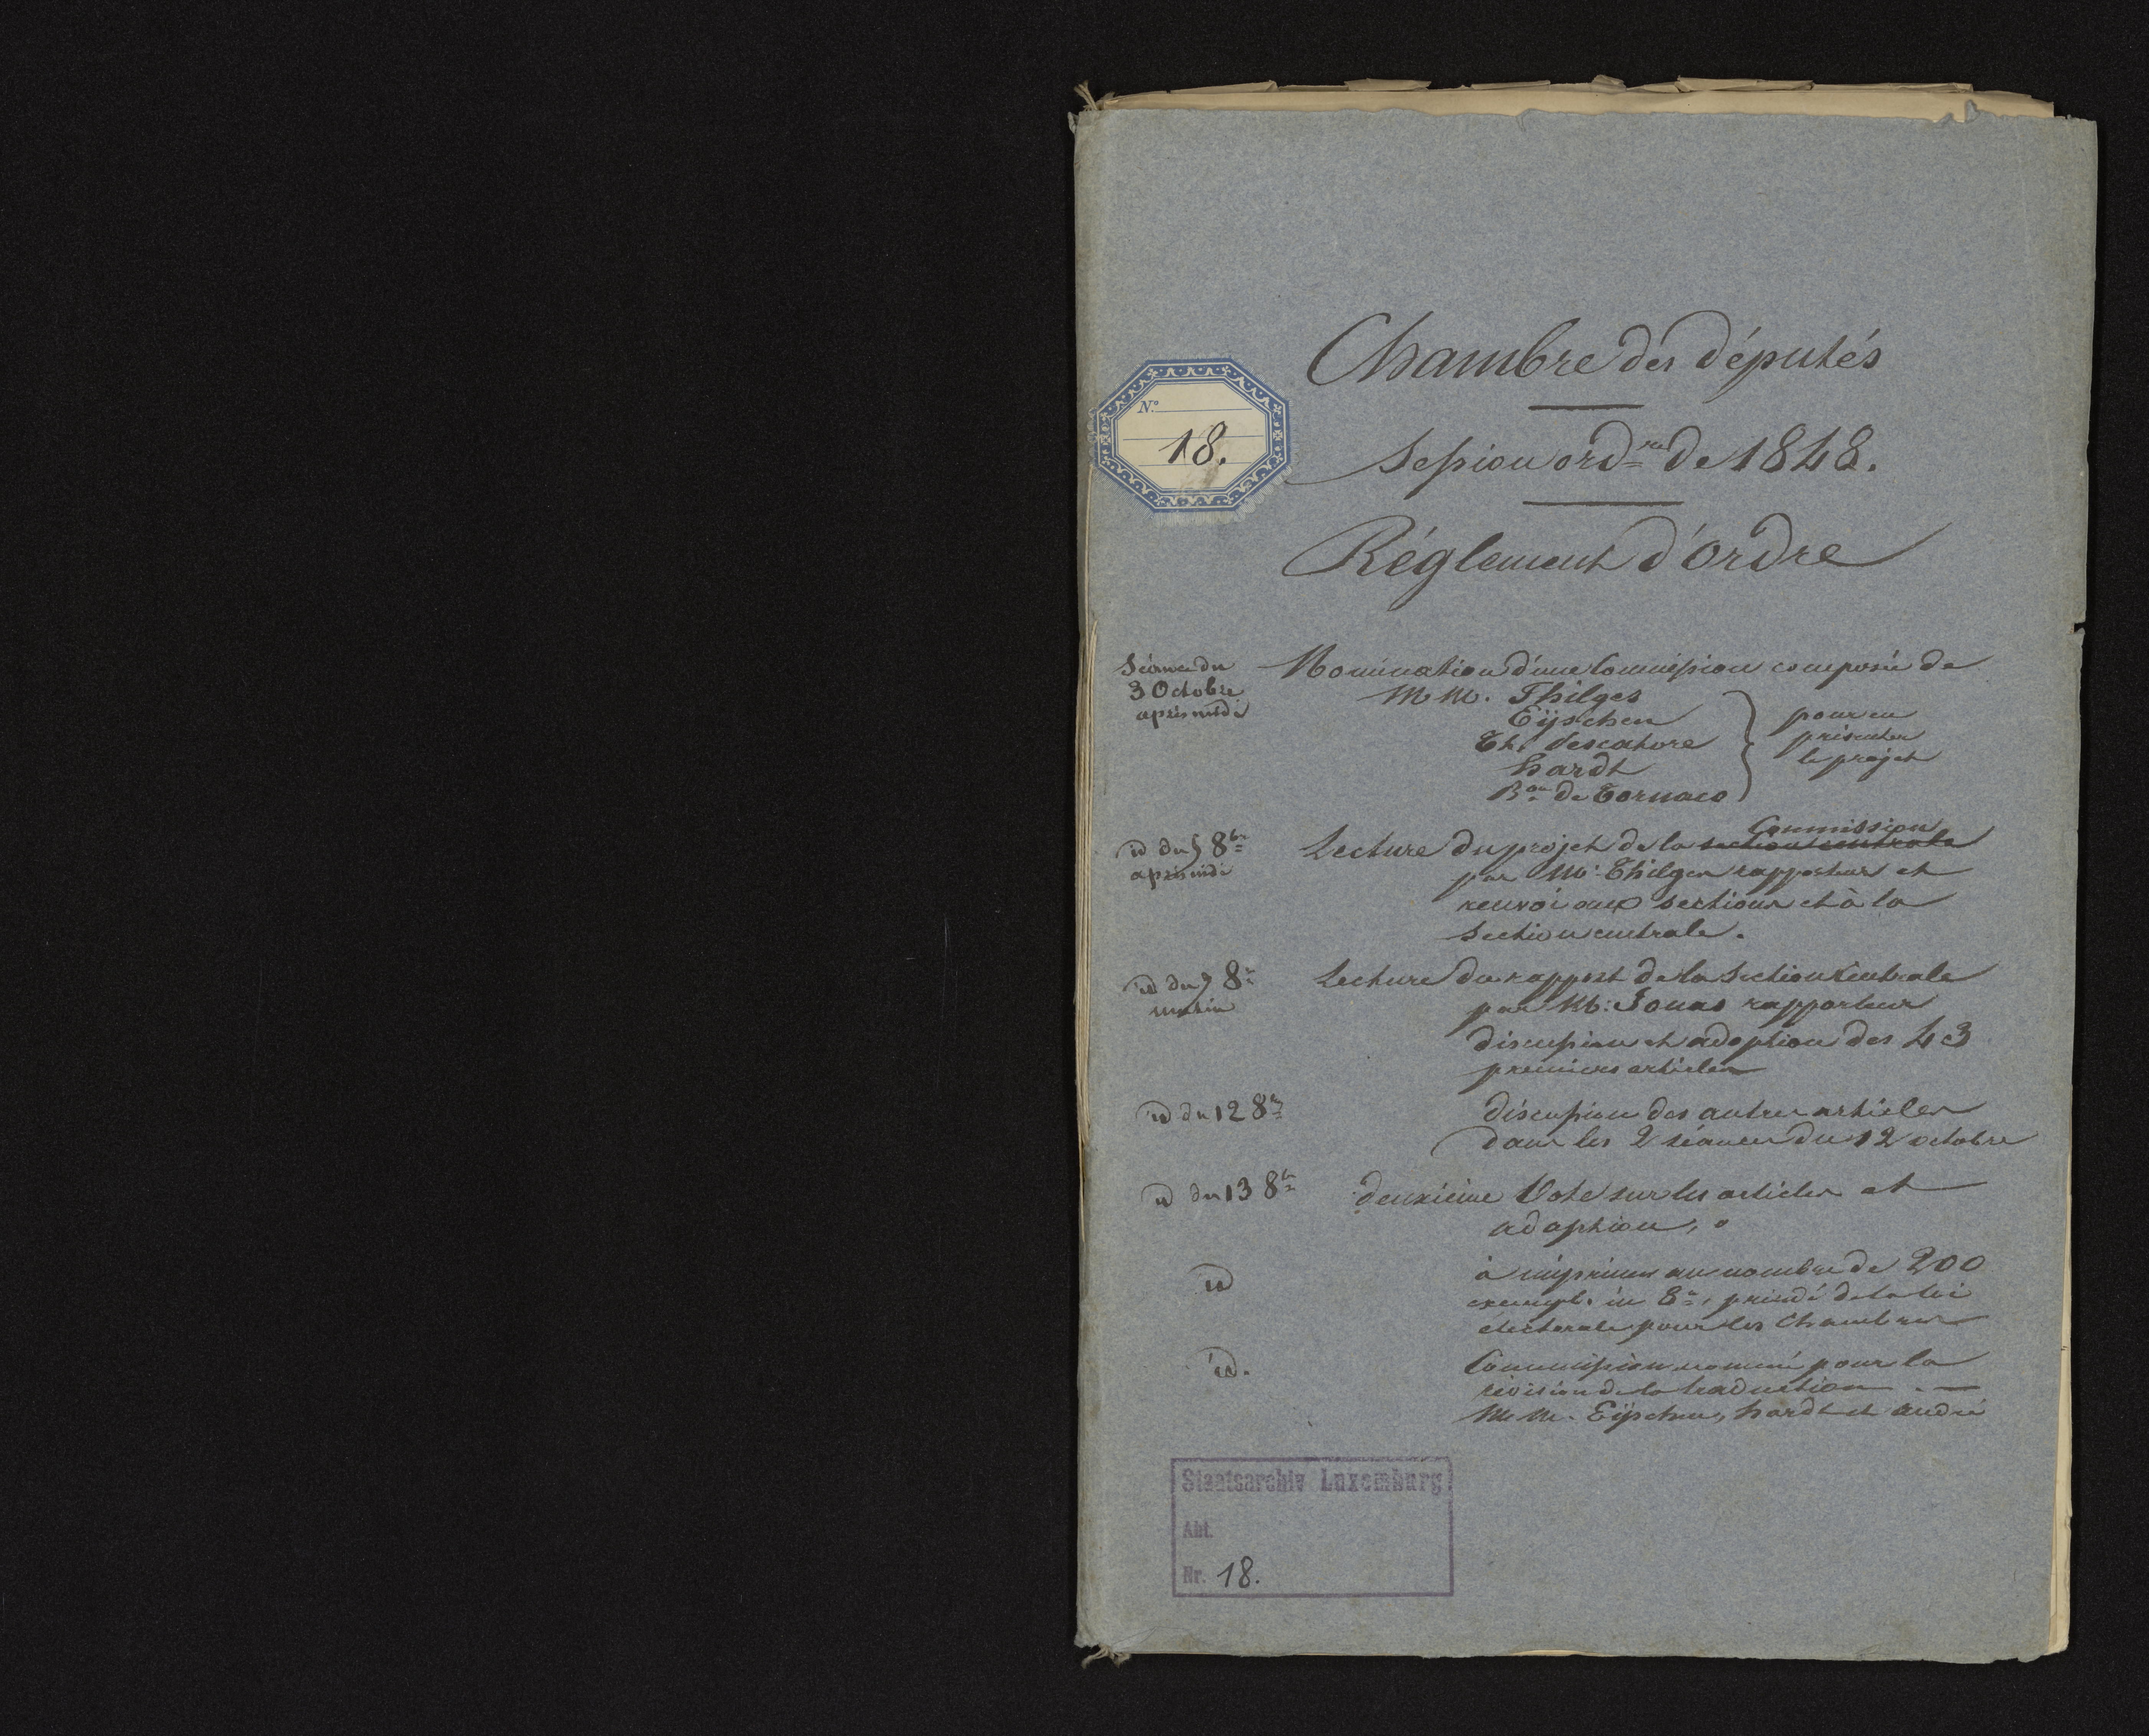 Chambre des députés
N.º
18.
Session ord.re de 1848.
Réglement d'ordre
Séance du
3 Octobre
après midi
Nomination d'une Commission composée de
MM. Thilges
Eÿschen
Th. Pescatore
hardt
B.on de Tornaco
pour en
présenter
le projet
id du 5 8bre
après midi
Lecture du projet de la section centrale
Commission
par Mr. Thilges rapporteur et
renvoi aux sections et à la
Section centrale.
id du 9 8re
matin
Lecture du rapport de la Section Centrale
par M: Jonas rapporteur
discussion et adoption des 43
premiers articles
id du 12 8re
discussion des autres articles
dans les 2 séances du 12 octobre
id du 13 8bre
deuxième Vote sur les articles et
adoption,
id
à imprimer au nombre de 200
exempl. in 8°, précédé de la loi
électorale pour les Chambres
id.
Commission nommée pour la
révision de la traduction. —
MM. Eÿschen, hardt et andré
Staatsarchiv Luxemburg
Abt.
Nr. 18.